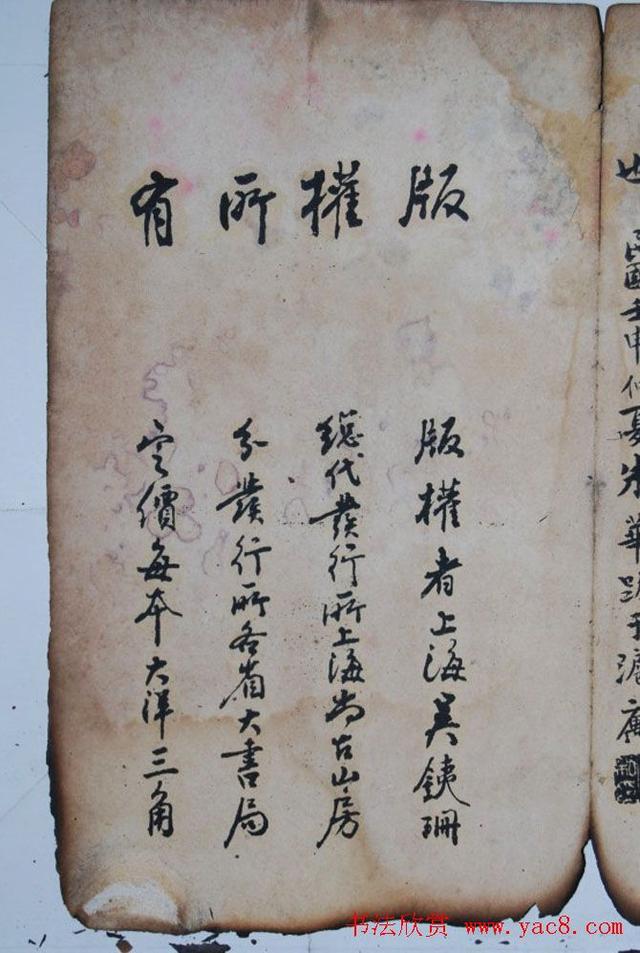 也 民國壬申仲夏朱華跋于滬廬
版權所有
版權者上海吳鐵珊
總代發行所上海尚古山房
分發行所各省大書局
定價每本大洋三角
书法欣赏 www.yac8.com